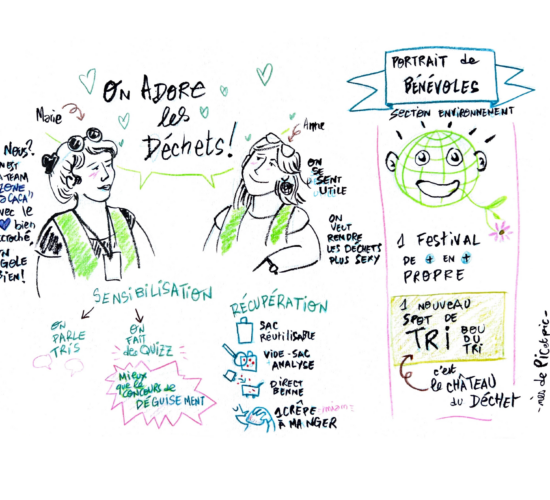 ON ADORE
les
DÉCHETS!
Marie
Anne
NOUS?
TEAM
avec le
bien
RIGOLE
BIEN!
ON
SE
SENT
UTILE
ON
VEUT
RENDRE
LES DÉCHETS
PLUS SEXY
SENSIBILISATION
ON
PARLE
TRIS
ON
FAIT
des QUIZZ
MIEUX
que le
CONCOURS de
DÉGUISEMENT
RÉCUPÉRATION
SAC
RÉUTILISABLE
VIDE-SAC
ANALYSE
DIRECT
BENNE
1 CRÊPE
À MANGER
PORTRAIT de
BÉNÉVOLES
SECTION ENVIRONNEMENT
1 FESTIVAL
DE + EN +
PROPRE
1 NOUVEAU
SPOT DE
TRI BOU
DU
TRI
c'est
le CHÂTEAU
du DÉCHET
-nés de PIC et pic-